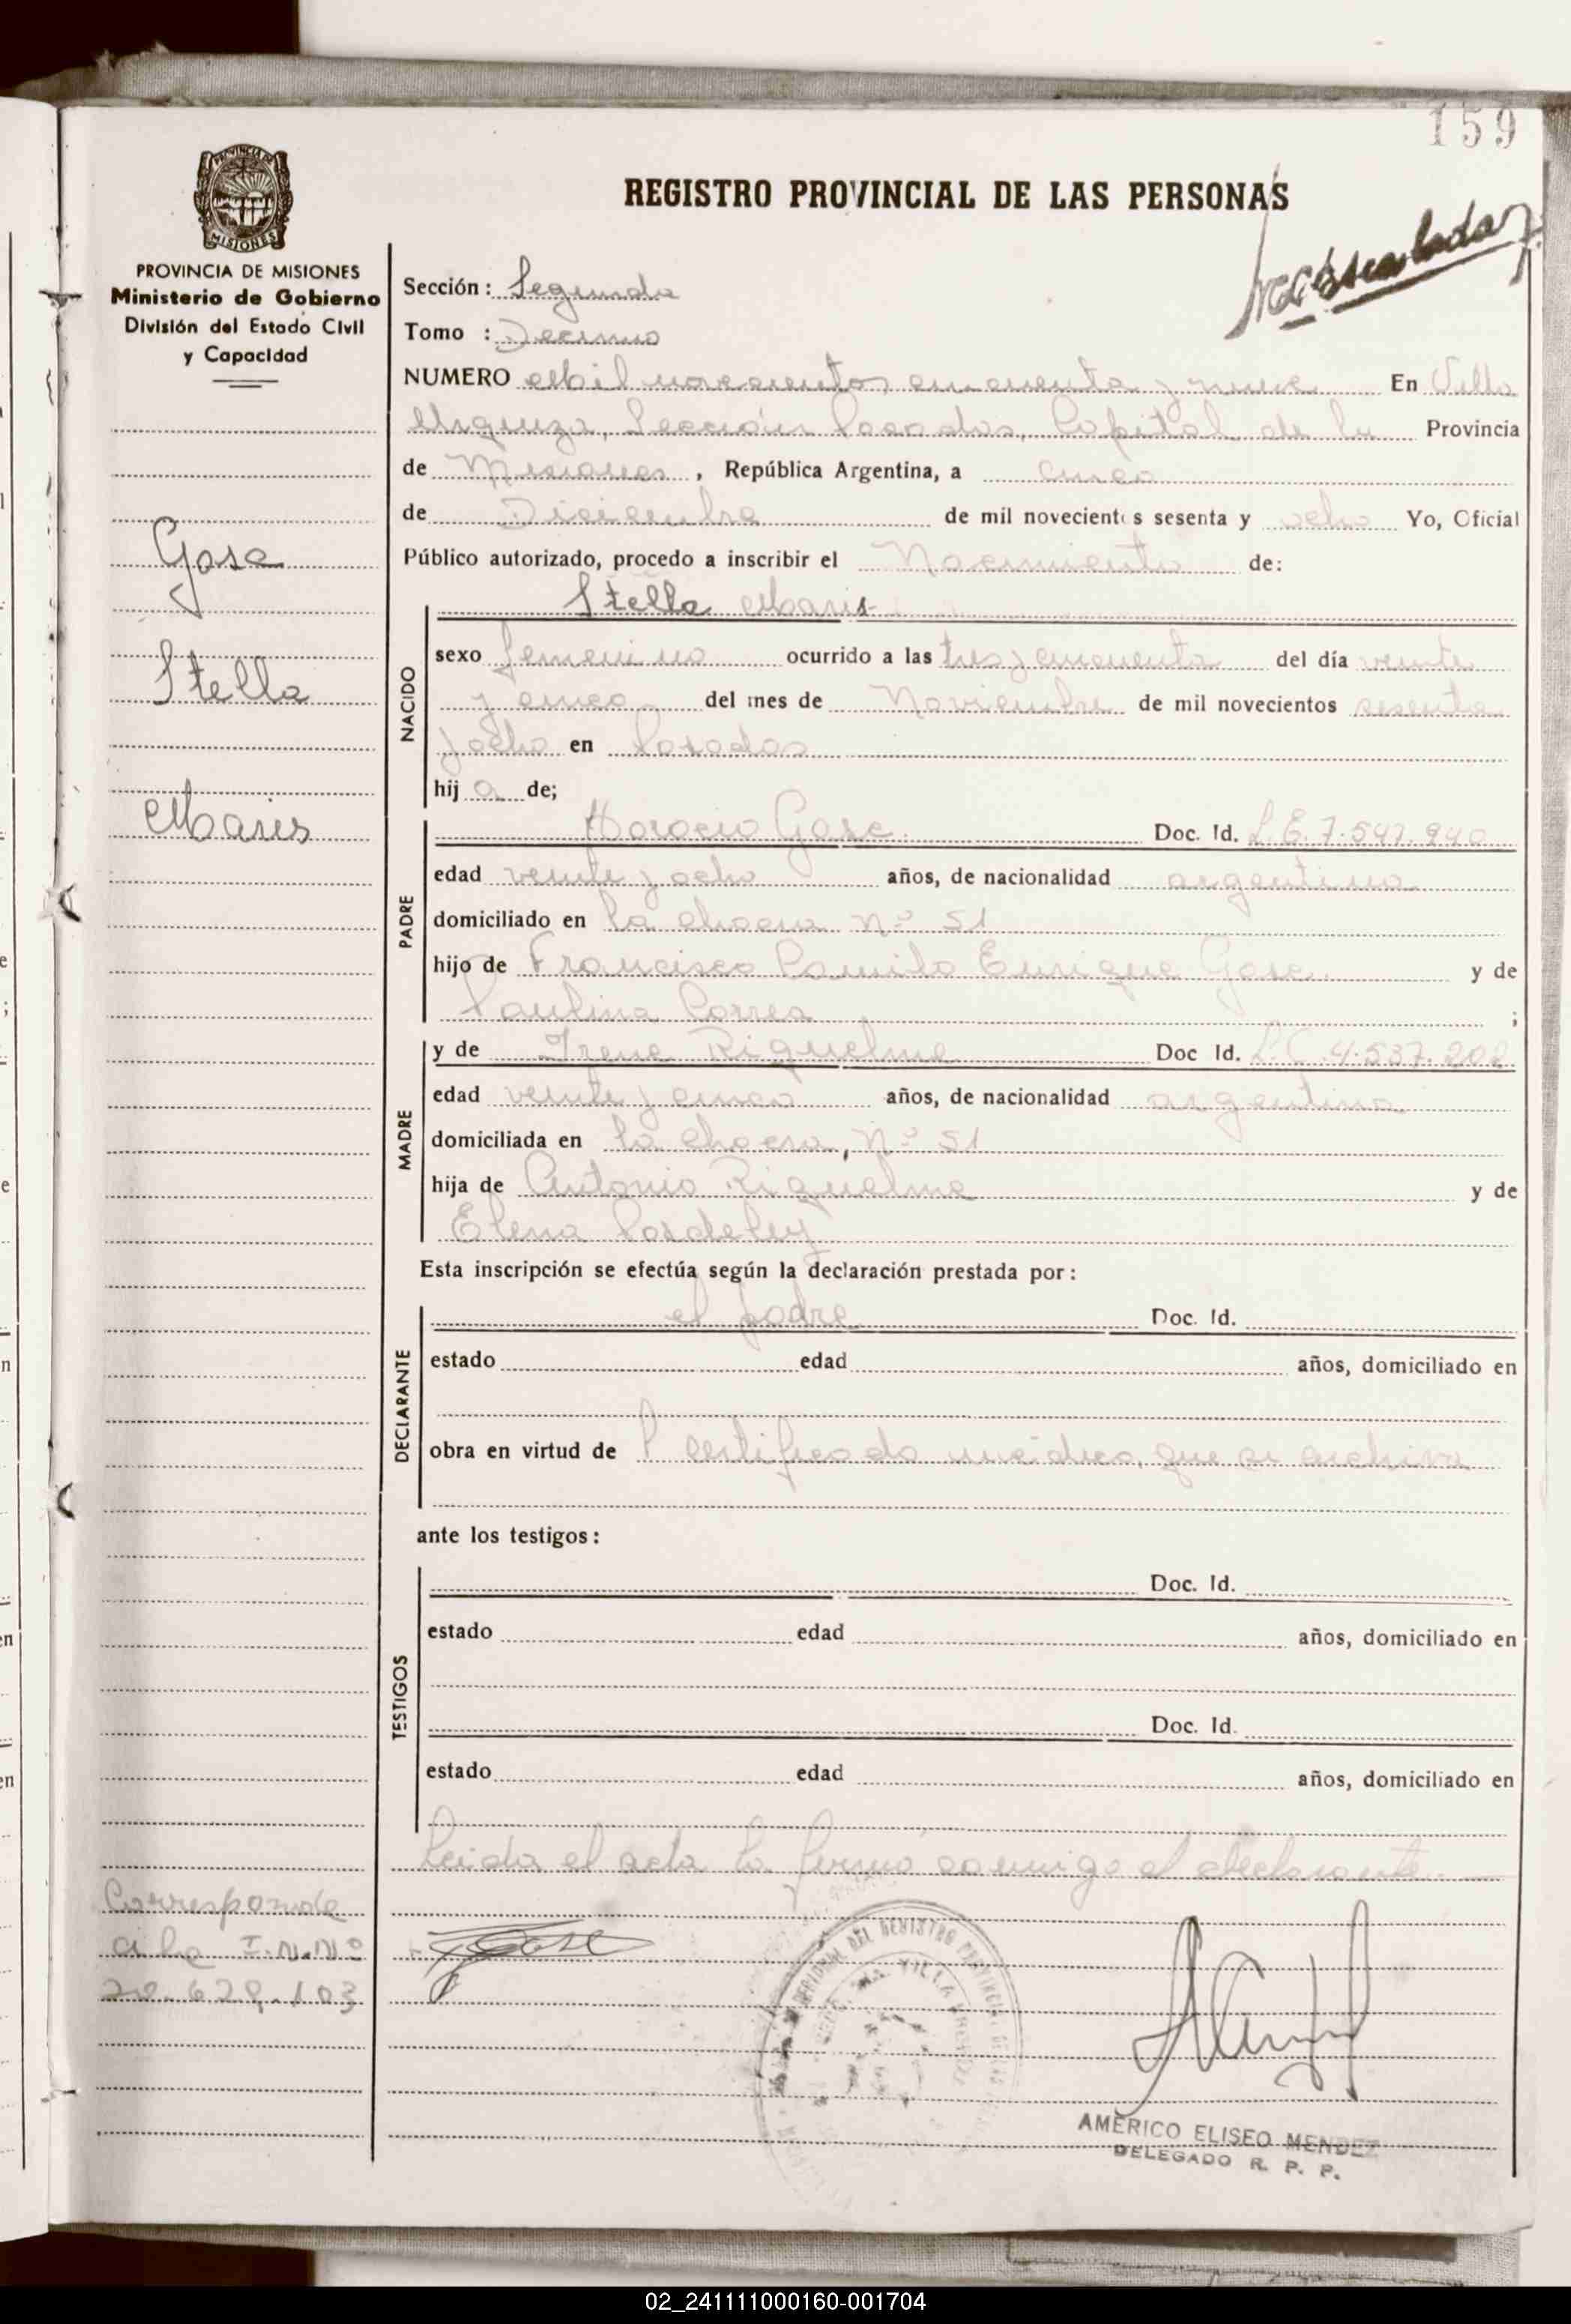 159
REGISTRO PROVINCIAL DE LAS PERSONAS
PROVINCIA DE MISIONES
Ministerio de Gobierno
División del Estado Civil
y Capacidad
Sección: Segunda
Tomo : Decimo
NUMERO Mil novecientos cincuenta y nueve En Villa
Urquiza, Sección Posadas, Capital de la Provincia
de Misiones, República Argentina, a cinco
de Diciembre de mil novecientos sesenta y ocho Yo, Oficial
Público autorizado, procedo a inscribir el Nacimiento de:
Gose
Stella
Maris
Stella Maris
NACIDO
sexo femenino ocurrido a las tres y cincuenta del día veinte
y cinco del mes de Noviembre de mil novecientos sesenta
y ocho en Posadas
hija de;
PADRE
Horacio Gose. Doc. Id. L.E.7.547.940
edad veinte y ocho años, de nacionalidad argentina
domiciliado en la chacra Nº 51
hijo de Francisco Camilo Enrique Gose y de
Paulina Correa ;
MADRE
y de Irene Riquelme Doc Id. L.C.4.537.202
edad veinte y cinco años, de nacionalidad argentina
domiciliada en la chacra, Nº 51
hija de Antonio Riquelme y de
Elena
Esta inscripción se efectúa según la declaración prestada por:
DECLARANTE
el padre Doc. Id.
estado edad años, domiciliado en
obra en virtud de l certificado médico, que se archiva
ante los testigos:
TESTIGOS
Doc. Id.
estado edad años, domiciliado en
Doc. Id.
estado edad años, domiciliado en
Leida el acta la firmó conmigo el declarante.
Corresponde
a la I.N.Nº
20.629.103
Gose
AMÉRICO ELISEO MENDEZ
DELEGADO R. P. P.
02_241111000160-001704